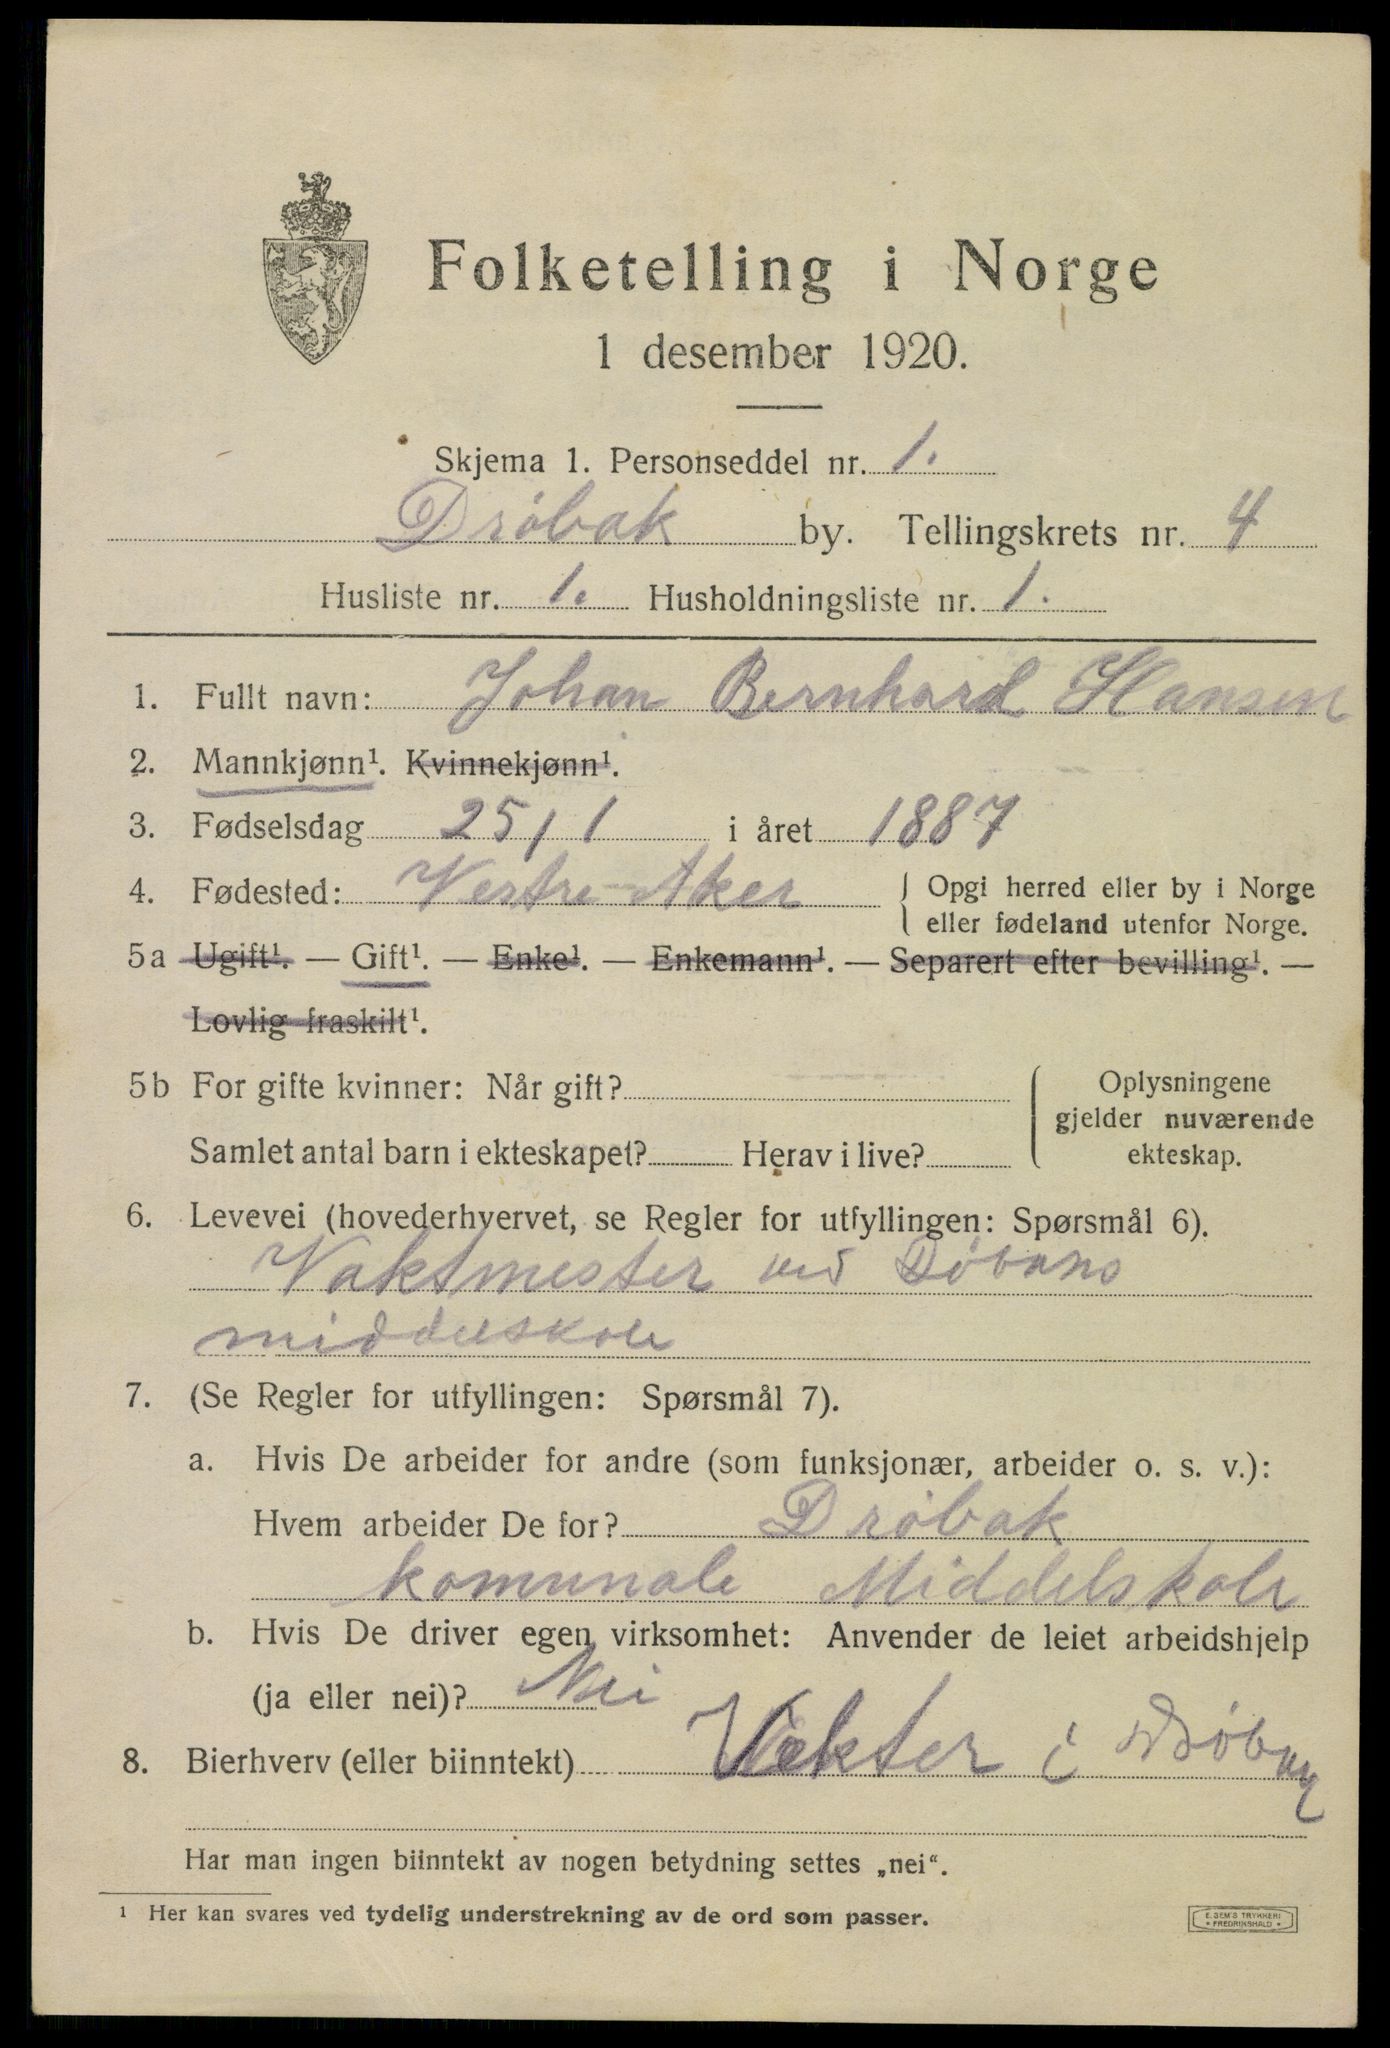 Folketelling i Norge
1 desember 1920.
Skjema 1. Personseddel nr. 1.
Drøbak by. Tellingskrets nr. 4
Husliste nr. 1. Husholdningsliste nr. 1.
1. Fullt navn: Johan Bernhard Hansen
2. Mannkjønn¹. Kvinnekjønn¹.
3. Fødselsdag 25/1 i året 1887
4. Fødested: Vestre Aker { Opgi herred eller by i Norge
eller fødeland utenfor Norge.
5a Ugift¹. — Gift¹. — Enke¹. — Enkemann¹. — Separert efter bevilling¹. —
Lovlig fraskilt¹.
5b For gifte kvinner: Når gift?
Samlet antal barn i ekteskapet? Herav i live?
Oplysningene
gjelder nuværende
ekteskap.
6. Levevei (hovederhvervet, se Regler for utfyllingen: Spørsmål 6).
Vaktmester ved
middelskole
7. (Se Regler for utfyllingen: Spørsmål 7).
a. Hvis De arbeider for andre (som funksjonær, arbeider o. s. v.):
Hvem arbeider De for? Drøbak
komunale Middelskole
b. Hvis De driver egen virksomhet: Anvender de leiet arbeidshjelp
(ja eller nei)? Nei
8. Bierhverv (eller biinntekt) Vekter i
Har man ingen biinntekt av nogen betydning settes „nei“.
¹ Her kan svares ved tydelig understrekning av de ord som passer.
E. SEM'S TRYKKERI
• FREDRIKSHALD •